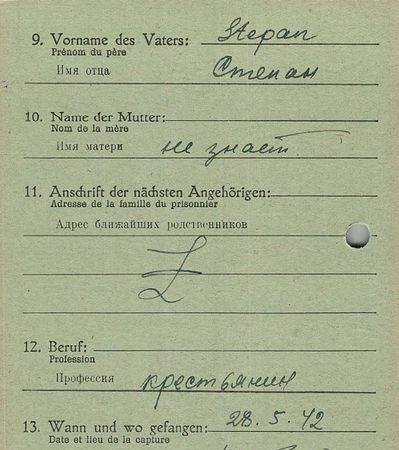 9. Vorname des Vaters: Stepan
Prénom du père
Имя отца Степан
10. Name der Mutter:
Nom de la mère
Имя матери не знает
11. Anschrift der nächsten Angehörigen:
Adresse de la famille du prisonnier
Адрес ближайших родственников
12. Beruf:
Profession
Профессия крестьянин
13. Wann und wo gefangen: 28. 5. 42
Date et lieu de la capture